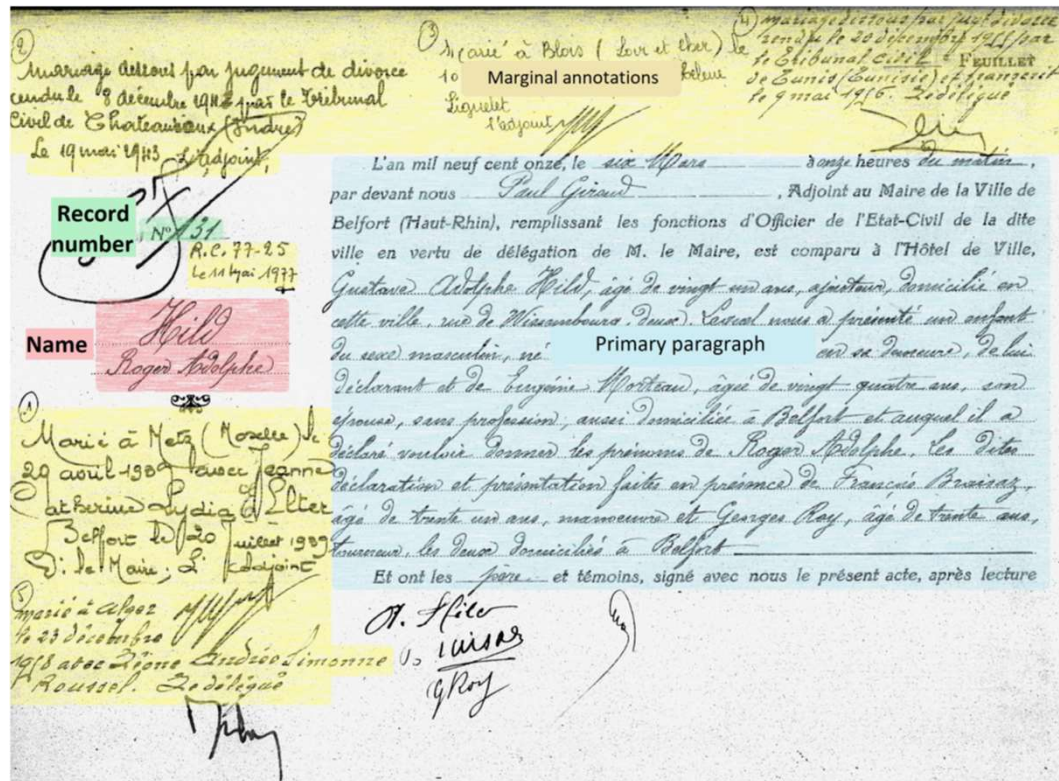 ②
mariage dissous par jugement de divorce
rendu le 8 décembre 1942 par le Tribunal
Civil de Chateauroux (Indre)
Le 19 mai 1943 L'adjoint,
③
Marié à Blois (Loir et Cher) le
10
Marginal annotations
Liguelet
l'adjoint,
④
mariage dissous par jugt divorce
rendu le 20 décembre 1955 par
le Tribunal civil
FEUILLET
de Tunis (Tunisie) et transcrit
le 9 mai 1956. Le délégué
Record
number
N° 131
R.C. 77-25
Le 11 Mai 1977
Name
Hild
Roger Adolphe
①
Marié à Metz (Moselle) le
29 avril 1939 avec Jeanne
Catherine Lydia Elter
Belfort le 20 juillet 1939
P. le Maire; L'adjoint
⑤
marié à Alger
le 23 décembre
1958 avec Léone Andrée Simonne
Roussel. Le délégué
L'an mil neuf cent onze, le six Mars à onze heures du matin,
par devant nous Paul Giraud, Adjoint au Maire de la Ville de
Belfort (Haut-Rhin), remplissant les fonctions d'Officier de l'Etat-Civil de la dite
ville en vertu de délégation de M. le Maire, est comparu à l'Hôtel de Ville,
Gustave Adolphe Hild, âgé de vingt un ans, ajusteur, domicilié en
cette ville, rue de Wissembourg, deux. Lequel nous a présenté un enfant
du sexe masculin, né
Primary paragraph
en sa demeure, de lui
déclarant et de Eugénie Morteau, âgée de vingt quatre ans, son
épouse, sans profession, aussi domiciliée à Belfort et auquel il a
déclaré vouloir donner les prénoms de Roger Adolphe. Les dites
déclaration et présentation faites en présence de François Braisaz,
âgé de trente un ans, manoeuvre et Georges Roy, âgé de trente ans,
tourneur, les deux domiciliés à Belfort
Et ont les père et témoins, signé avec nous le présent acte, après lecture
A. Hild
G Roy